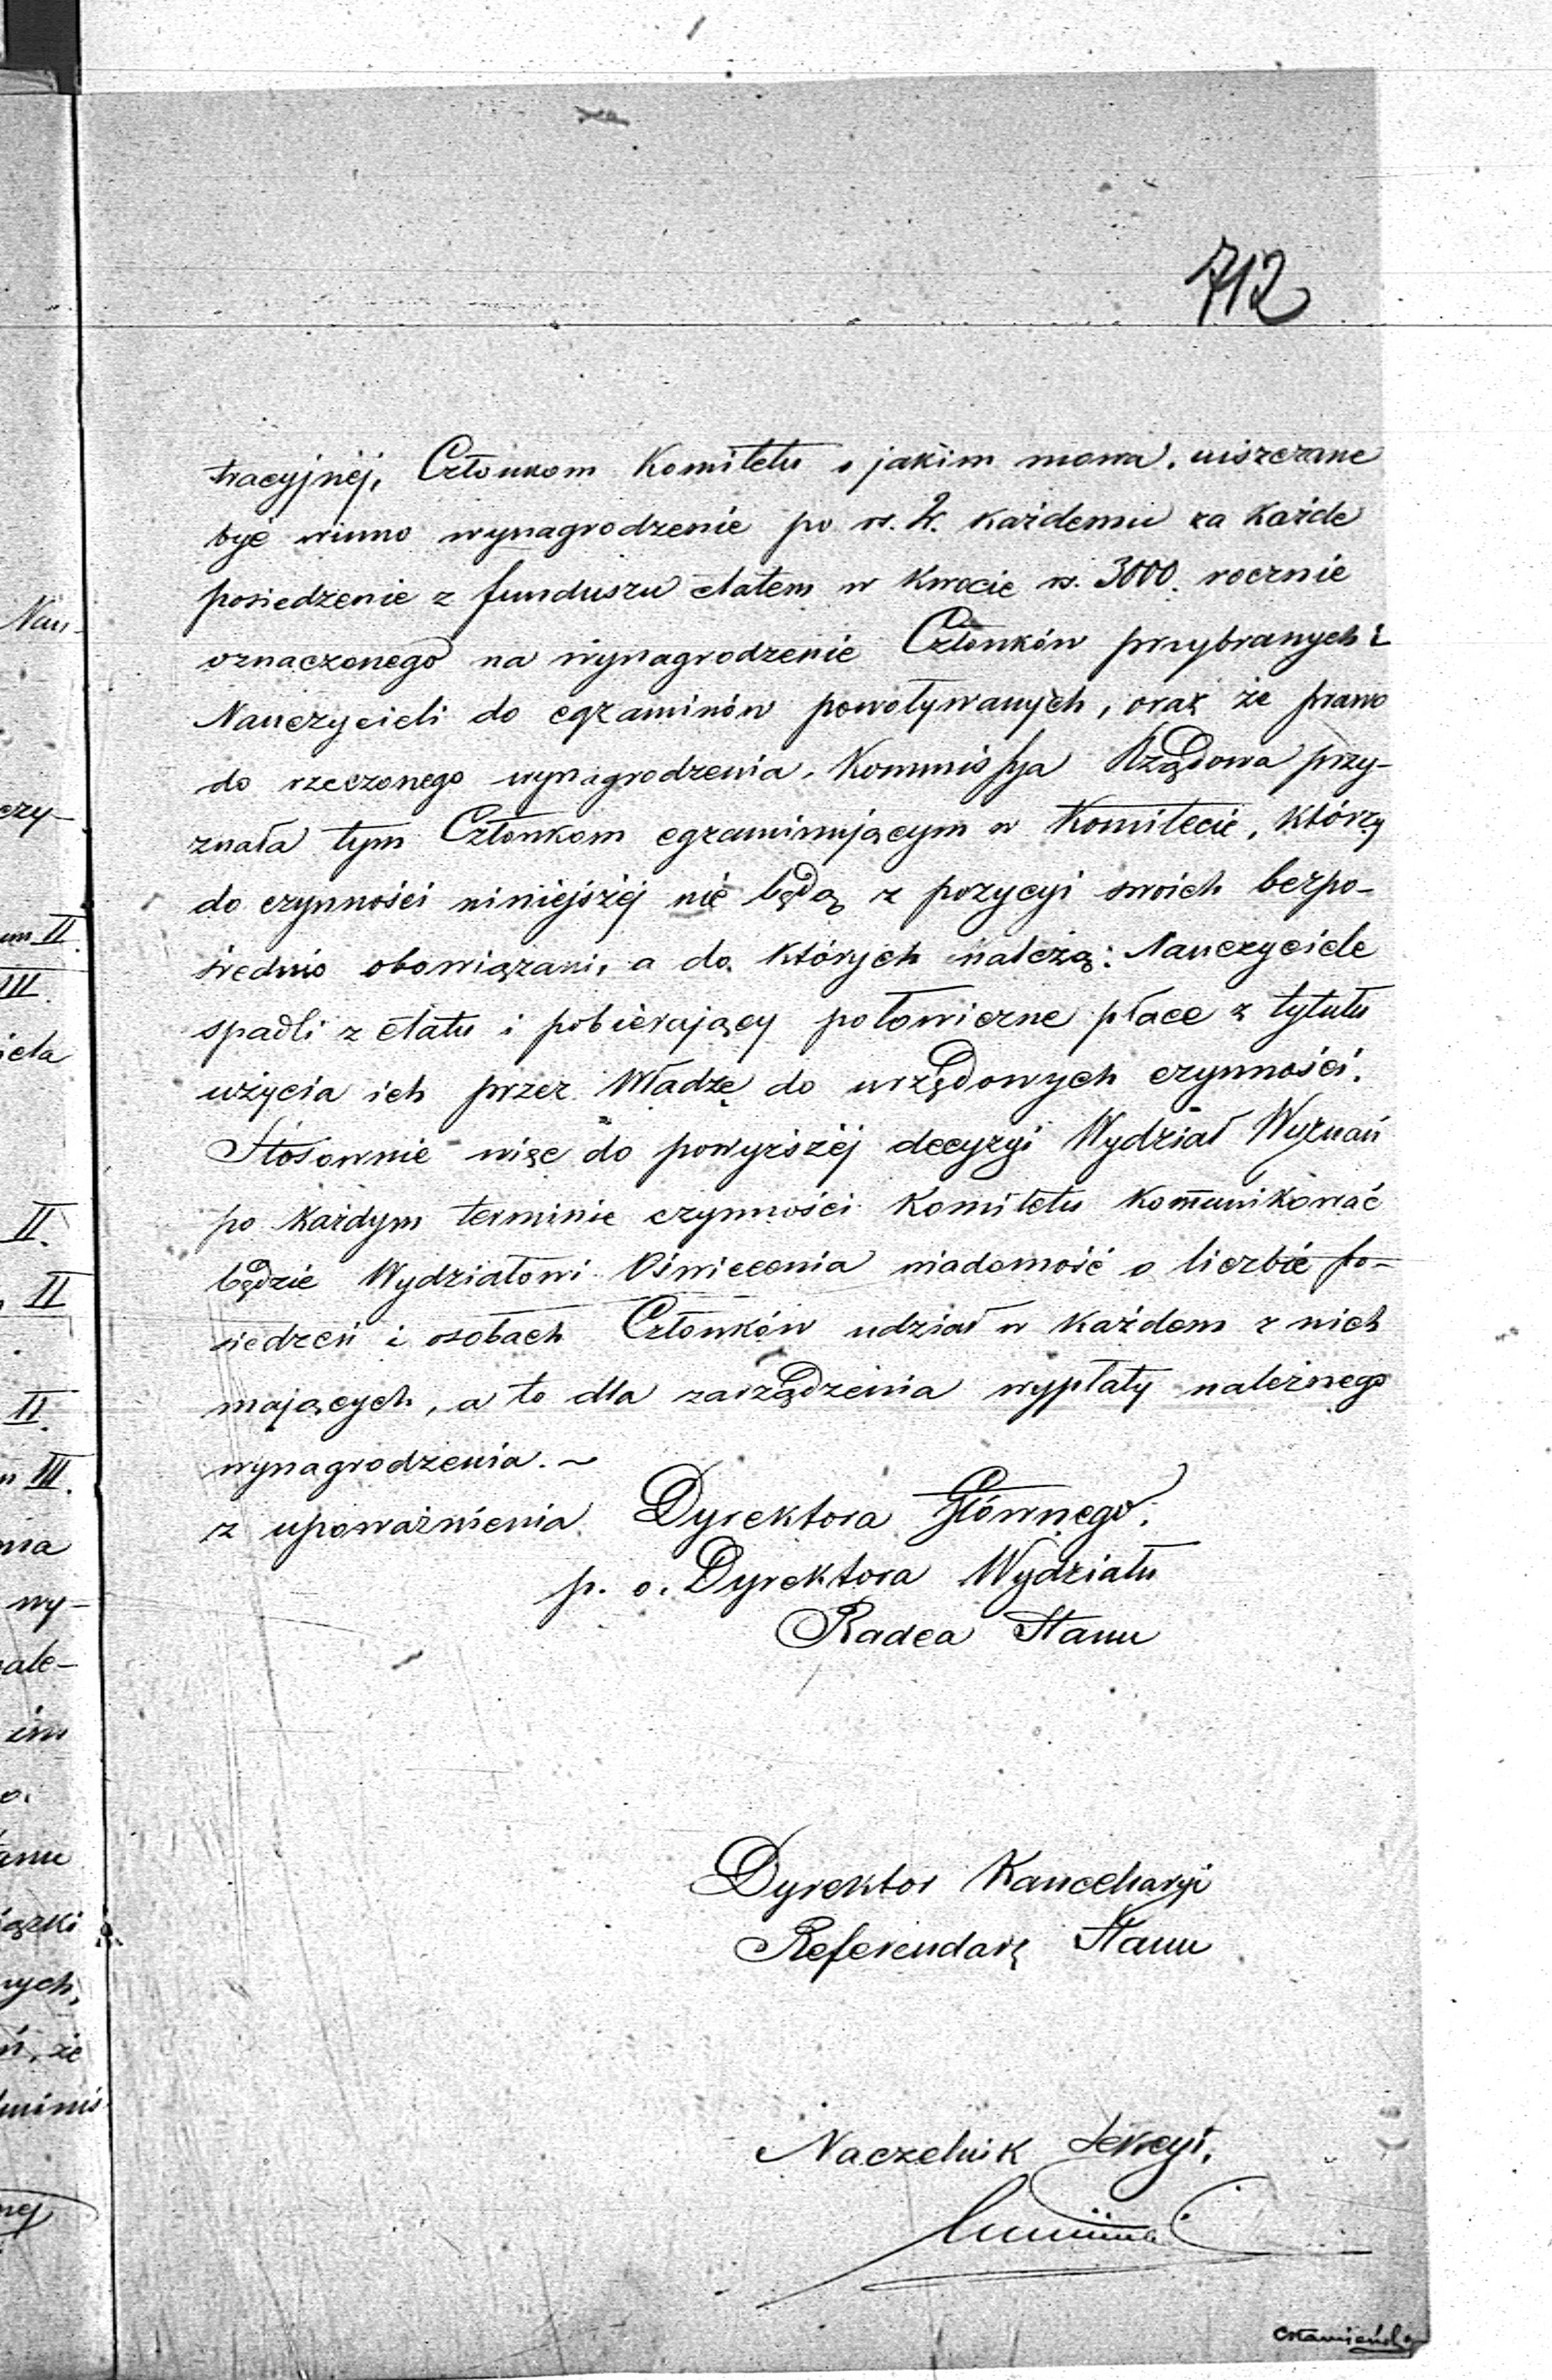 712
tracyjnéj, Członkom Komitetu o jakim mowa, uiszczane
być winno wynagrodzenie po rs. 2. każdemu za każde
posiedzenie z funduszu etatem w kwocie rs. 3000. rocznie
oznaczonego na wynagrodzenie Członków przybranych i
Nauczycieli do egzaminów powoływanych, oraz że prawo
do rzeczonego wynagrodzenia, Kommissya Rządowa przy-
znała tym Członkom egzaminującym w Komitecie, którzy
do czynności niniejszéj nie będą z pozycyi swoich bezpo-
średnio obowiązani, a do których należą: Nauczyciele
spadli z etatu i pobierający połowiczne płace z tytułu
użycia ich przez Władzę do urzędowych czynności.
Stosownie więc do powyższéj decyzyi Wydział Wyznań
po każdym terminie czynności Komitetu komunikować
będzie Wydziałowi Oświecenia wiadomość o liczbie po-
siedzeń i osobach Członków udział w każdem z nich
mających, a to dla zarządzenia wypłaty należnego
wynagrodzenia. ~
z upoważnienia Dyrektora Głównego.
p. o. Dyrektora Wydziału
Radca Stanu
Dyrektor Kancellaryi
Referendarz Stanu
Naczelnik Sekcyi,
Nau-
czy-
II
III.
II.
II
II.
III.
wy-